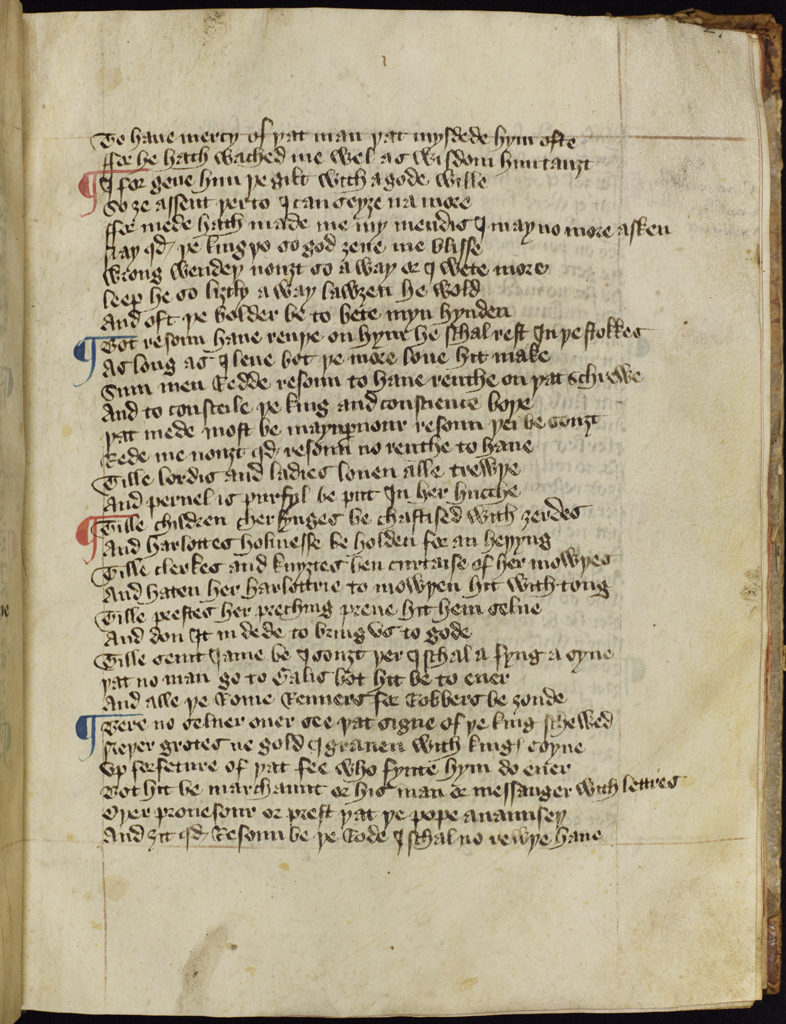 To haue mercy of þat man þat mysdede hym ofte
ffor he hath wached me wel as wisdom him tauȝt
I for geue him þe gilt with a gode wille
So ȝe assent þerto I can seyȝe na more
ffor mede hath made me my mendis I may no more asken
Nay qd þe king þo so god ȝeue me blisse
Wrong wendeþ nouȝt so a way or I wete more
Leep he so liȝtly a way lawȝen he wold
And oft þe bolder be to bete myn hynden
Bot resoun haue reuþe on hym he schal rest In þe stokkes
As long as I leue bot þe more loue hit make
Sum men Redde resoun to haue reuthe on þat schrewe
And to conseile þe king and conscience boþe
þat mede most be maynpnour resoun þei be souȝt
Rede me nouȝt qd resoun no reuthe to haue
Tille lordis and ladies louen alle trewþe
And pernel is purfyl be put In her hucche
Tille children chersynges be chastised with ȝerdes
And harlottes holinesse be holden for an heþyng
Tille clerkes and knyȝtes ben curtaise of her mowþes
And haten her harlottrie to mowþen hit with tong
Tille prestes her preching preue hit hem selue
And don It in dede to bring vs to gode
Tille seint Iame be I souȝt þer I schal a syng a syne
þat no man go to Galis bot hit be to euer
And alle þe Rome Renners for Robbers be ȝonde
Bere no seluer ouer see þat signe of þe king schewed
Neþer grotes ne gold I grauen with king coyne
Vp forfeture of þat fee who fynte hym do euer
Bot hit be marchaunt or his man or messanger with lettres
Oþer prouesour or prest þat þe pope anaunseþ
And ȝit qd Resoun be þe Rode I schal no rewþe haue